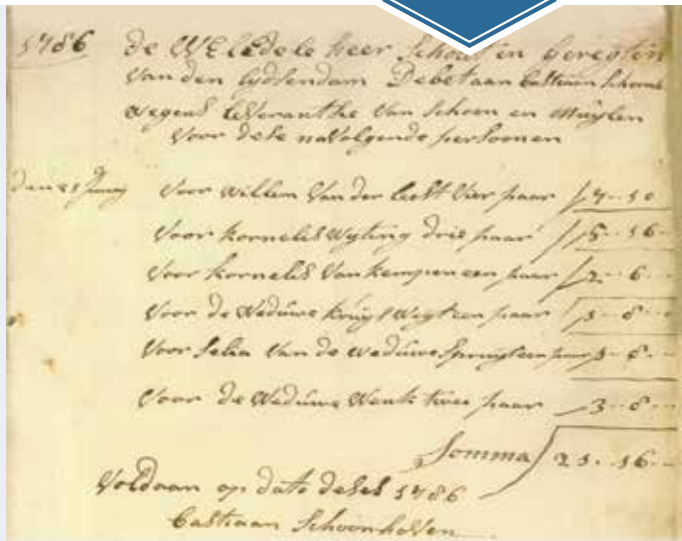 1786 de WelEdele heer Schout en Geregten
van den Lydsendam Debet aan Bastiaan Schoonh
wegens leveranthe van schoen en muylen
voor dese navolgende persoonen
den 21 Juny voor willem van der leest vier paar f 7-10
voor kornelis Wyting drie paar f 5-16
voor kornelis van kempen een paar f 2-6
voor de weduwe kruyt een paar
voor van de weduwe een paar
voor de weduwe Wenk twee paar 3-8
Somma 21-16
Voldaan op dato deses 1786
Bastiaan Schoonhoven